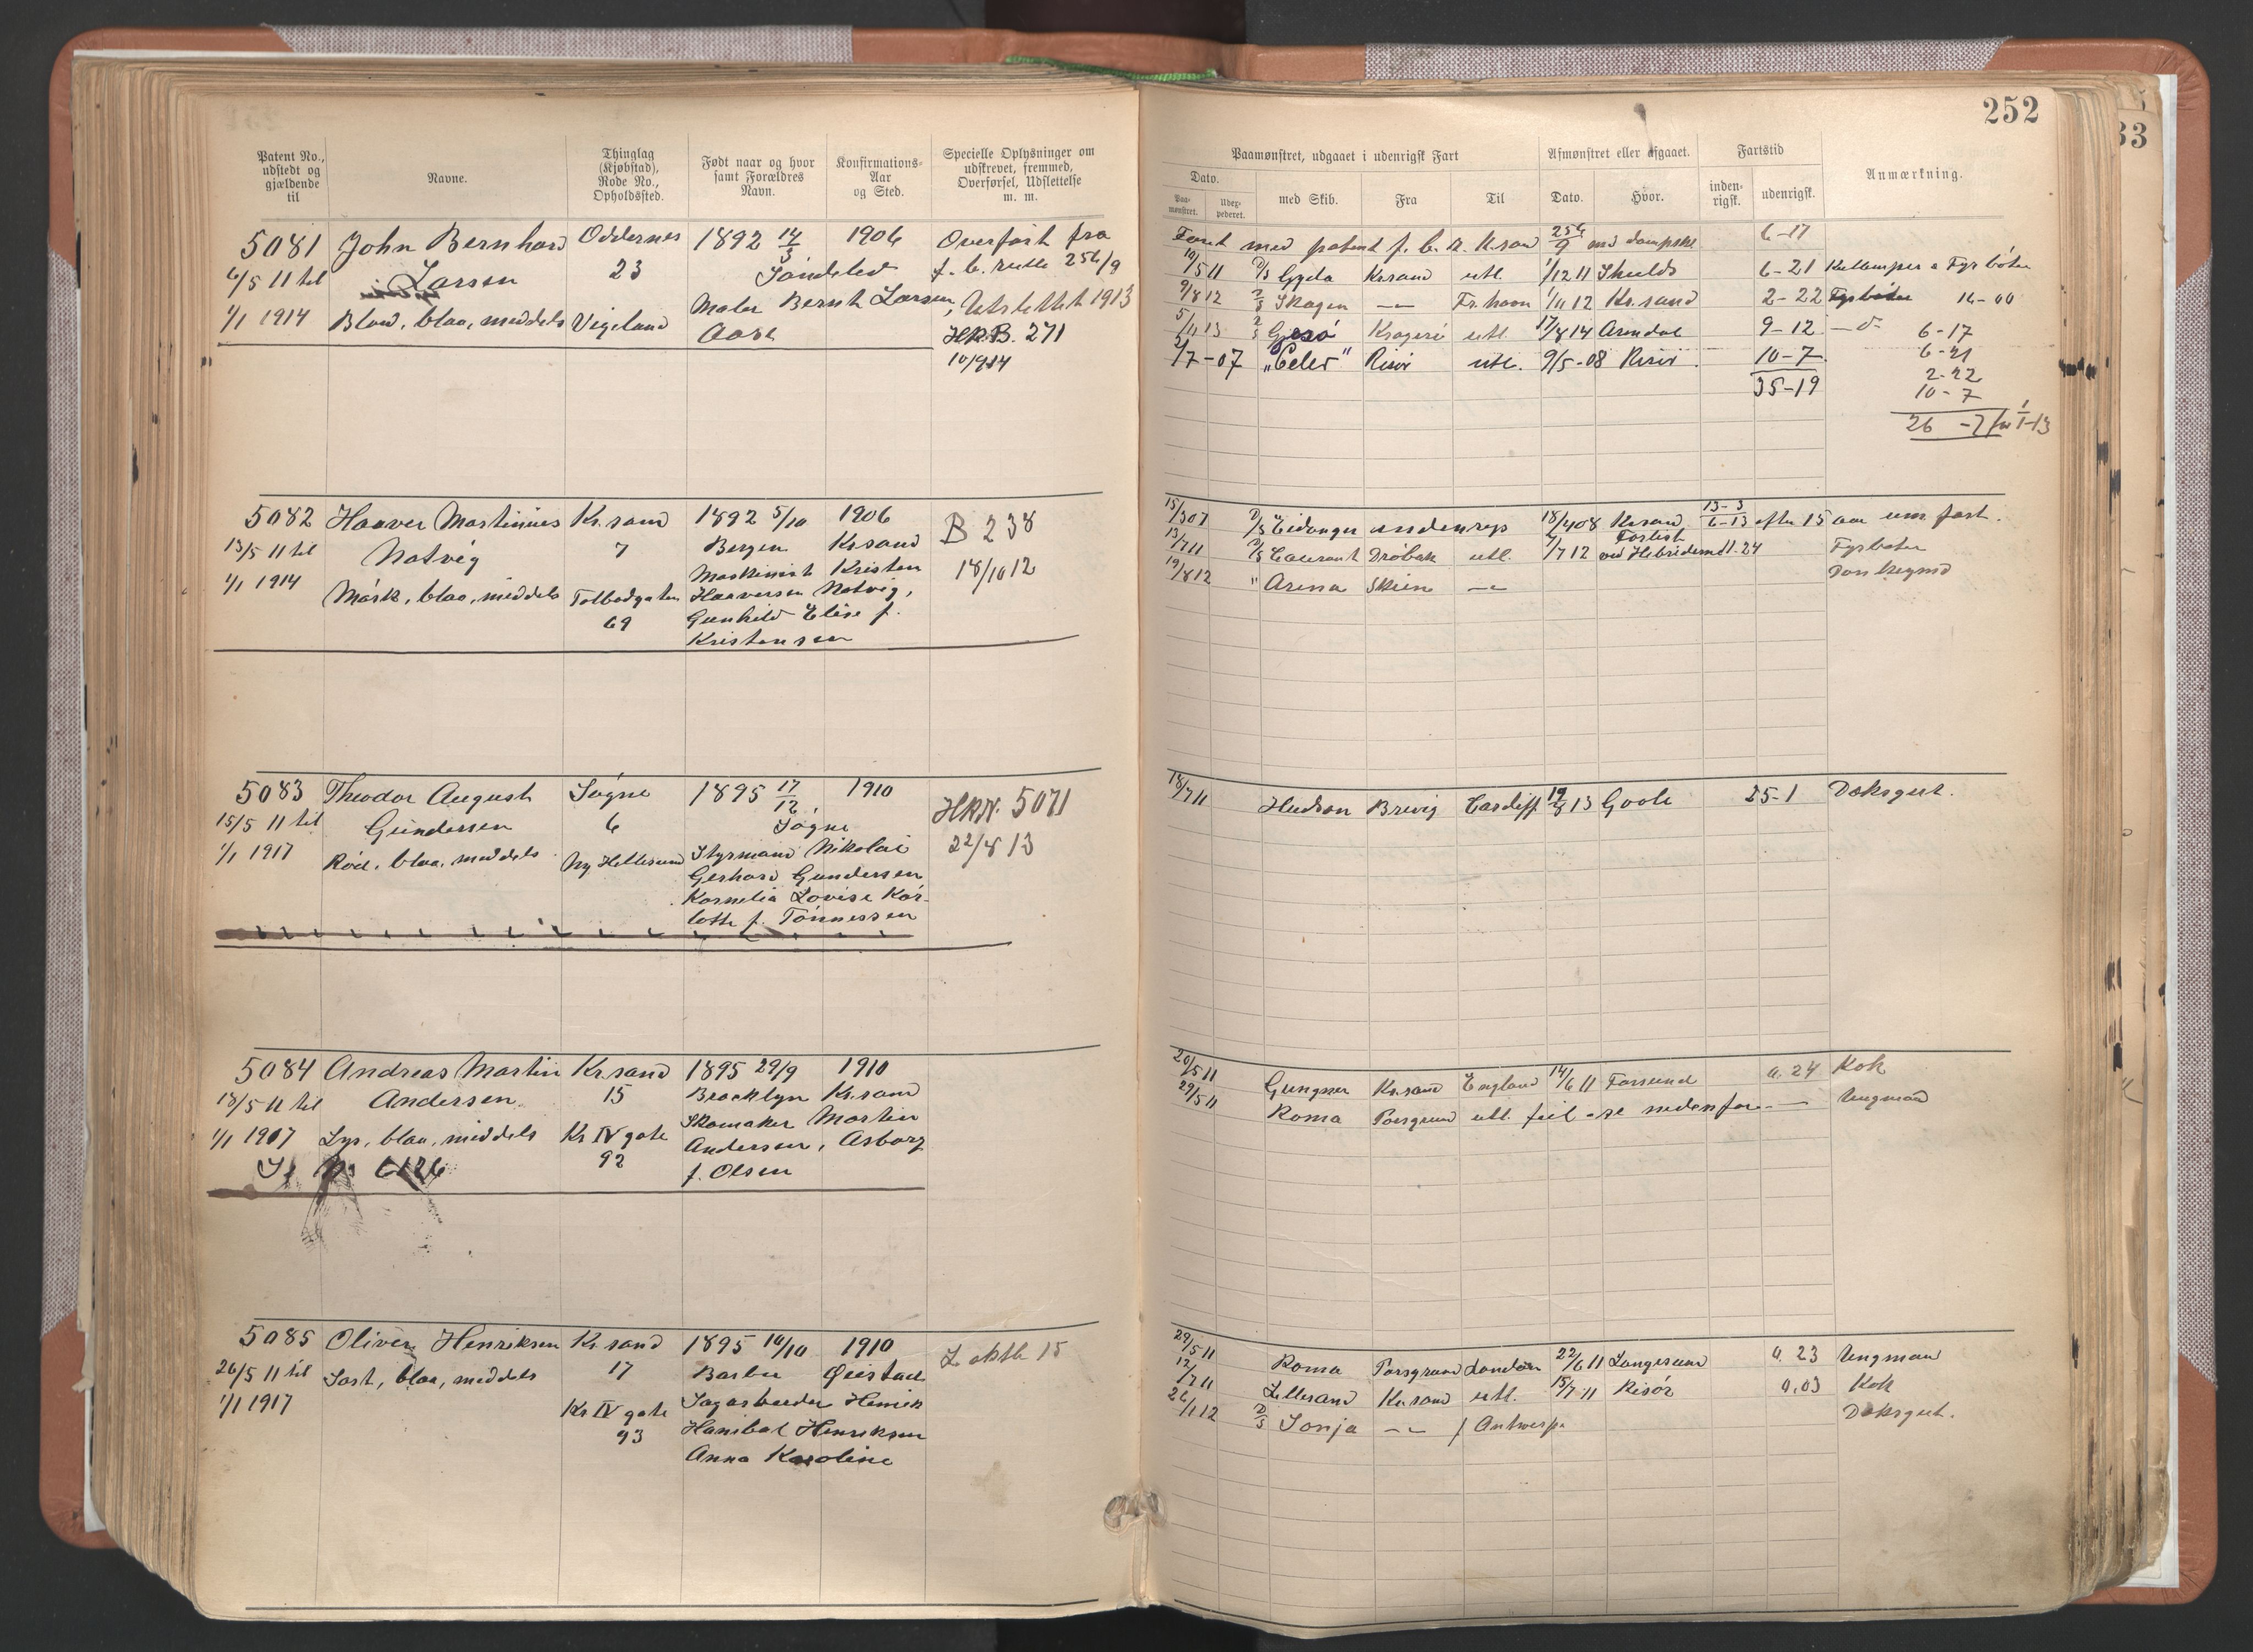 252
Patent No., udstedt og gjældende til
Navne.
Thinglag (Kjøbstad), Rode No., Opholdssted.
Født naar og hvor samt Forældres Navn.
Konfirmations-Aar og Sted.
Specielle Oplysninger om udskrevet, fremmed, Overførsel, Udslettelse m. m.
Paamønstret, udgaaet i udenrigsk Fart
Dato.
Paa-mønstret.
Udex-pederet.
med Skib.
Fra
Til
Afmønstret eller afgaaet.
Dato.
Hvor.
Fartstid
inden-rigsk.
udenrigsk.
Anmærkning.
5081 John Bernhard Oddernes 1892 14/3 1906 Overført fra
6/5 11 til Larsen 23 Søndeled f. b. rulle 256/9
1/1 1914 Blond, blaa, middels Vigeland Maler Bernt Larsen, Udslettet 1913
Aase HRB. 271
10/9 14
Faret med patent f. b. r. Kr.sand 256/9 med dampsk 6-17
19/5 11 D/S Gyda Kr.sand utl. 1/12 11 Shields 6-21 Kullemper & Fyrbøter
9/8 12 D/S Skagen — Fr.havn 1/11 12 Kr.sand 2-22 Fyrbøter 16-00
5/11 13 D/S Gjesø Kragerø utl. 17/8 14 Arendal 9-12 —d— 6-17
2/7-07 "Celer" Risør utl. 9/5-08 Risør 10-7 6-21
35-19 2-22
10-7
26-7 før 1/1-13
5082 Haaver Martinius Kr.sand 1892 5/10 1906 B 238
13/5 11 til Natvig 7 Bergen Kr.sand 18/10 12
1/1 1914 Mørk, blaa, middels Tolbodgaten Maskinist Kristen
69 Haaversen Natvig,
Gunhild Elise f.
Kristensen
15/3 07 D/S Eidanger indenrigs 18/4 08 Kr.sand 13-3 6-13 efter 15 aar um fart.
13/7 11 D/S Drøbak utl. 7/7 12 Forlist ved Hebriderne 11.24 Fyrbøter
19/8 12 " Arena Skien —
5083 Theodor August Søgne 1895 17/12 1910 HRN. 5071
15/5 11 til Gundersen 6 Søgne 22/8 13
1/1 1917 Rød, blaa, middels Ny Hellesund Styrmand Nikolai
Gerhard Gundersen
Kornelia Lovise Kar-
lotte f. Tønnessen
18/7 11 Hudson Brevig Cardiff 19/8 13 Goole 25-1 Dæksgut.
5084 Andreas Martin Kr.sand 1895 29/9 1910
18/5 11 til Andersen 15 Brooklyn Kr.sand
1/1 1907 Lys, blaa, middels Kr IV gate Skomaker Martin
92 Andersen, Asborg
f. Olsen
Se no 6126
20/5 11 Gungner Kr.sand England 14/6 11 Farsund 0.24 Kok
29/5 11 Roma Porsgrund utl. feil - se nedenfor — Ungmand
5085 Oliver Henriksen Kr.sand 1895 14/10 1910 L. oktb 15
26/5 11 til Sort, blaa, middels 17 Barbu Øiestad
1/1 1917 Kr IV gate Sagarbeider Henrik
93 Hanibal Henriksen
Anna Karoline
29/5 11 Roma Porsgrund London 22/6 11 Langesund 0.23 Ungmand
12/7 11 Lillesand Kr.sand utl. 15/7 11 Risør 0.03 Kok
26/1 12 D/S Sonja — f Antwerp. Dæksgut.